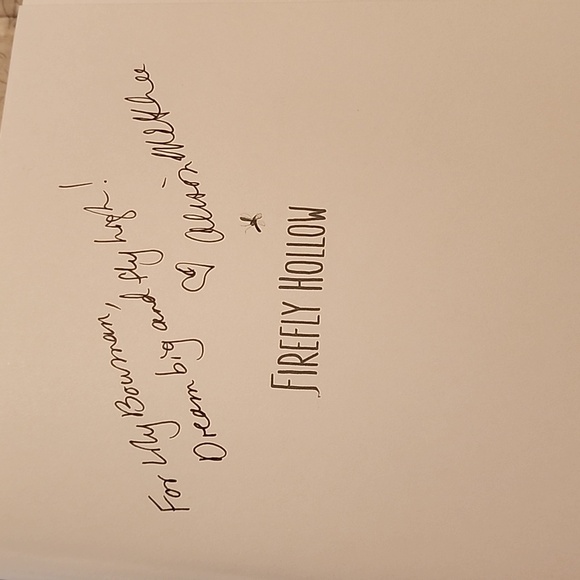 For Lily Bowman,
Dream big and fly high!
♡ Alison McGhee
FIREFLY HOLLOW